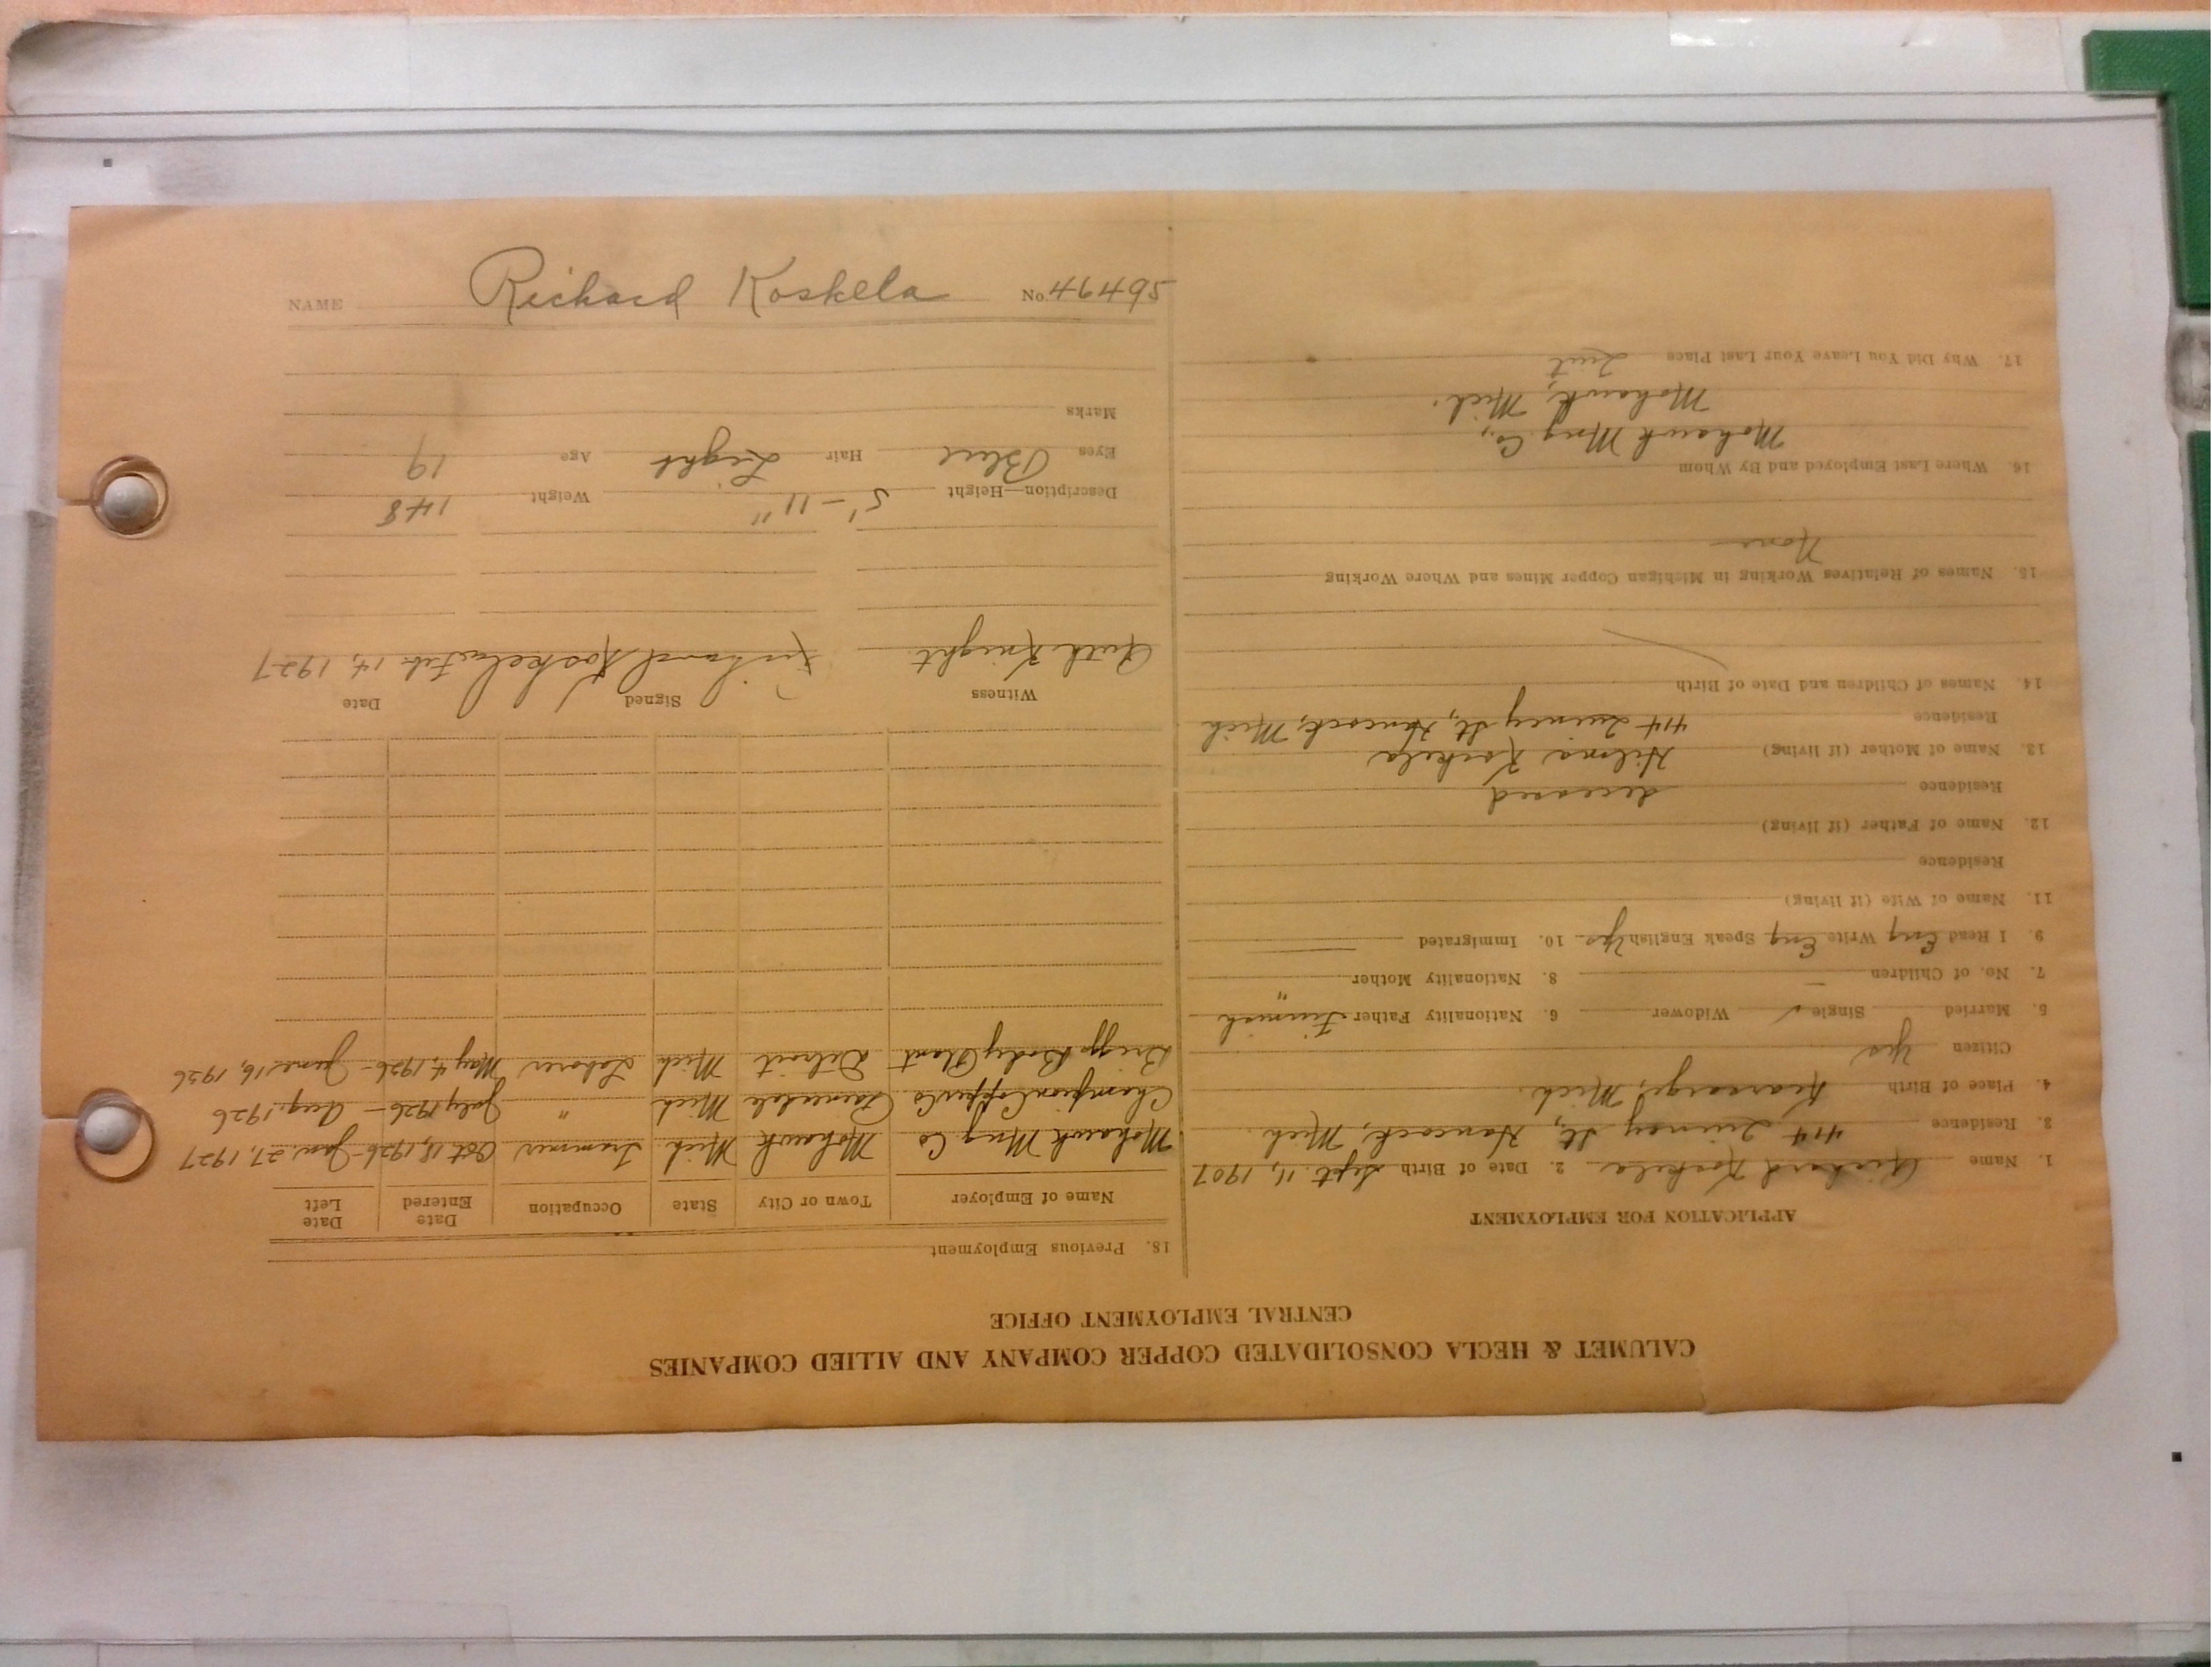 CALUMET & HECLA CONSOLIDATED COPPER COMPANY AND ALLIED COMPANIES
CENTRAL EMPLOYMENT OFFICE
APPLICATION FOR EMPLOYMENT
1. Name Richard Koskela 2. Date of Birth Sept. 11, 1907
3. Residence 414 Quincy St, Hancock, Mich.
4. Place of Birth Kearsarge, Mich.
Citizen Yes
5. Married Single ✓ Widower 6. Nationality Father Finnish
7. No. of Children – 8. Nationality Mother "
9. I Read Eng Write Eng Speak English Yes 10. Immigrated
11. Name of Wife (if living)
Residence
12. Name of Father (if living)
Residence deceased
13. Name of Mother (if living) Hilma Koskela
Residence 414 Quincy St, Hancock, Mich
14. Names of Children and Date of Birth
15. Names of Relatives Working in Michigan Copper Mines and Where Working
None
16. Where Last Employed and By Whom
Mohawk Mng Co,
Mohawk, Mich.
17. Why Did You Leave Your Last Place Quit
18. Previous Employment
Name of Employer Town or City State Occupation Date Entered Date Left
Mohawk Mng Co Mohawk Mich Trammer Oct 18, 1926 - Jan. 27, 1927
Champion Copper Co Painesdale Mich " July 1926 - Aug. 1926
Briggs Body Plant Detroit Mich Laborer May 4, 1926 - June 16, 1926
Witness Signed Date
Ruth Knight Richard Koskela Feb. 14, 1927
Description—Height 5'-11" Weight 148
Eyes Blue Hair Light Age 19
Marks
NAME Richard Koskela No. 46495